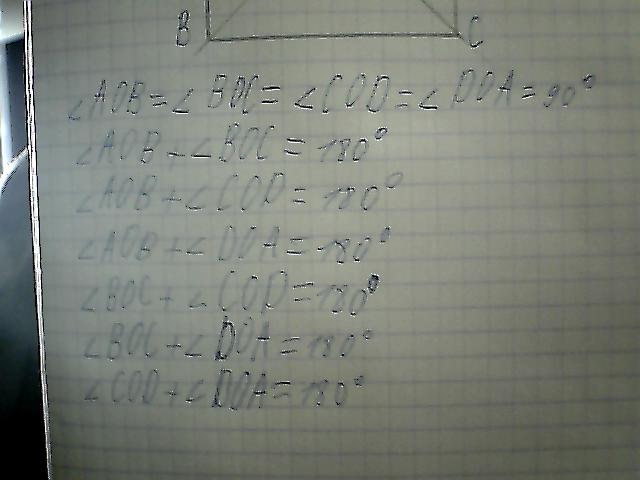 B C
∠AOB=∠BOC=∠COD=∠DOA=90°
∠AOB+∠BOC=180°
∠AOB+∠COD=180°
∠AOB+∠DOA=180°
∠BOC+∠COD=180°
∠BOC+∠DOA=180°
∠COD+∠DOA=180°